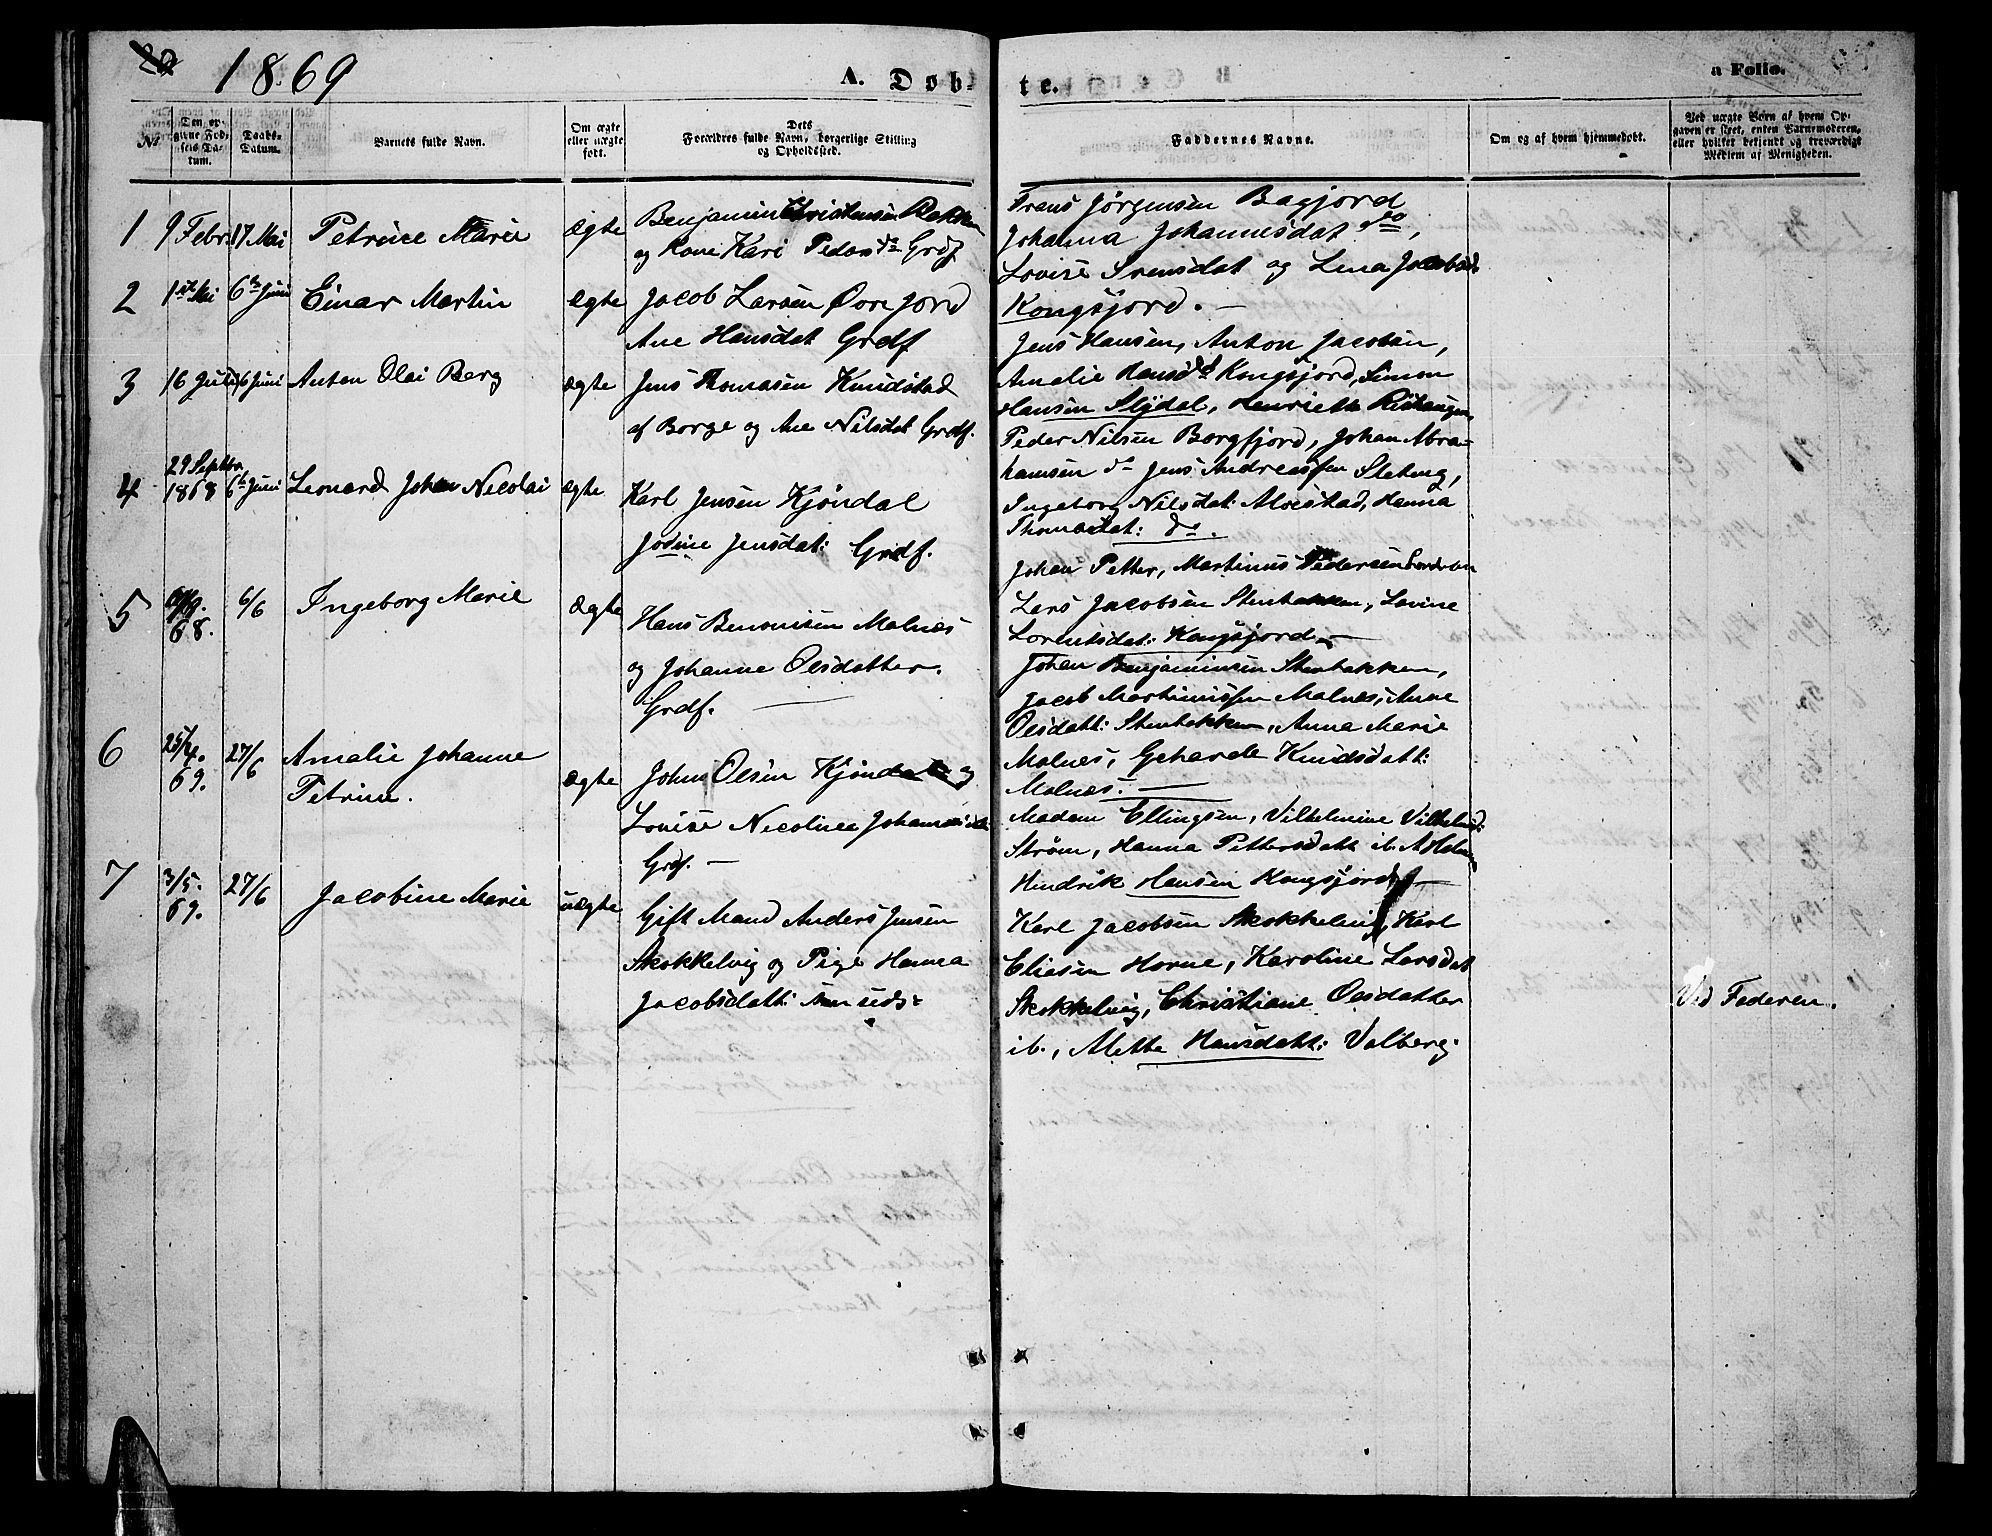 1869
A. Døbte.
a Folio.
№
Den opgivne Fødsels Datum.
Daabs-Datum.
Barnets fulde Navn.
Om ægte eller uægte født.
Dets Forældres fulde Navn, borgerlige Stilling og Opholdsted.
Faddernes Navne.
Om og af hvem hjemmedøbt.
Ved uægte Børn af hvem Opgaven er skeet, enten Barnemoderen, eller hvilket bekjendt og troværdigt Medlem af Menigheden.
1 9 Febr. 17 Mai Petrine Marie ægte
Benjamin Christensen Bakken
og Kone Kari Peders Ds Grdf.
2 1ste Mai 6te Juni Einar Martin ægte
Jacob Larsen Øvrefjord
Ane Hansdat Grdf
3 16 6 Juni Anton Olai Berg ægte
Jens Thomasen Knudstad
af Borge og Ane Nilsdat Grdf.
4 29 Septbr. 1868 6te Juni Leonard Johan Nicolai ægte
Karl Jensen Kjøndal
Jensdat: Grdf.
5 68. 6/6 Ingeborg Marie ægte
Hans Benonisen Malnes
og Johanne Olsdatter.
Grdf. —
6 25/4. 69. 27/6 Amalie Johanne
Petrine. ægte
Johns Olsen Kjøndal og
Lovise Nicolina
Grdf. —
7 3/5. 69. 27/6 Jacobine Marie uægte
Gift Mand Anders Jensen
Skokkelvig og Pige Hanna
Jacobsdatt:
Frens Jørgensen Bagjord
Johanna Johannesdat do,
Lovise Frensdat og Lena
Kongsjord. —
Jens Hansen, Anton Jacobsen,
Amalie Hansdt Kongsjord, Simon
Hansen Slydal, Henriette
Peder Nilsen Borgfjord, Johan Abra-
hamsen do Jens Andreassen
Ingeborg Nilsdat: Hanna
Thomasdat: do.
Johan Petter, Martinus Pedersen
Lars Jacobsen Stenbakken, Lovine
Lorentsdat: Kongsjord —
Johan Benjaminsen Stenbakken,
Jacob Martinussen Malnes, Anne
Olsdatt: Stenbakken, Anna Marie
Malnes, Geharde Knudsdatt:
Malnes. —
Madam Ellingsen, Vilhelmine
Strøm, Hanna Pettersdatt ib.
Hindrik Hansen Kongsjord —
Karl Jacobsen Skokkelvig, Karl
Eliasen Horne, Karoline Larsdat
Skokkelvig, Christiane Olsdatter
ib., Alette Hansdatt: Valberg.
Ved Faderen.